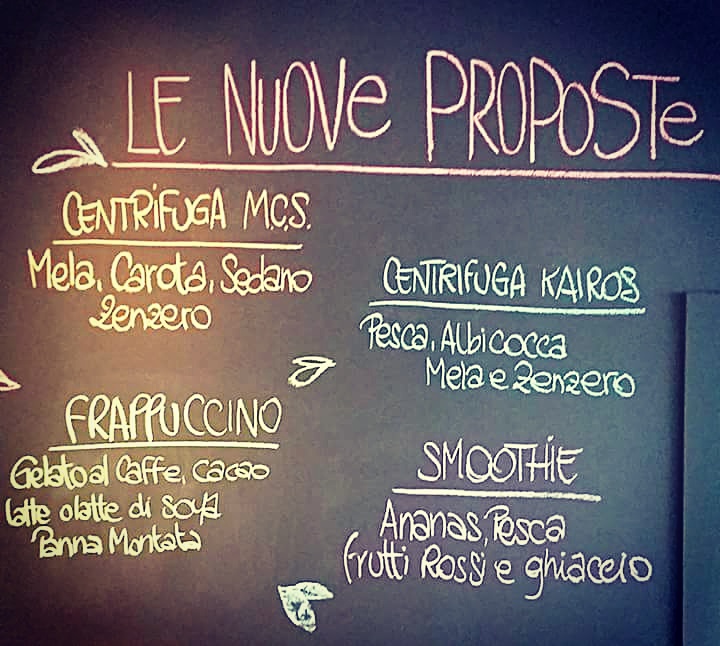 LE NUOVE PROPOSTe
CENTRiFUGA M.C.S.
Mela, Carota, Sedano
Zenzero
CENTRIFUGA KAIROS
Pesca, Albicocca
Mela e Zenzero
FRAPPUCCINO
Gelato al Caffe, cacao
latte o latte di soya
Panna Montata
SMOOTHiE
Ananas, Pesca
frutti Rossi e ghiaccio